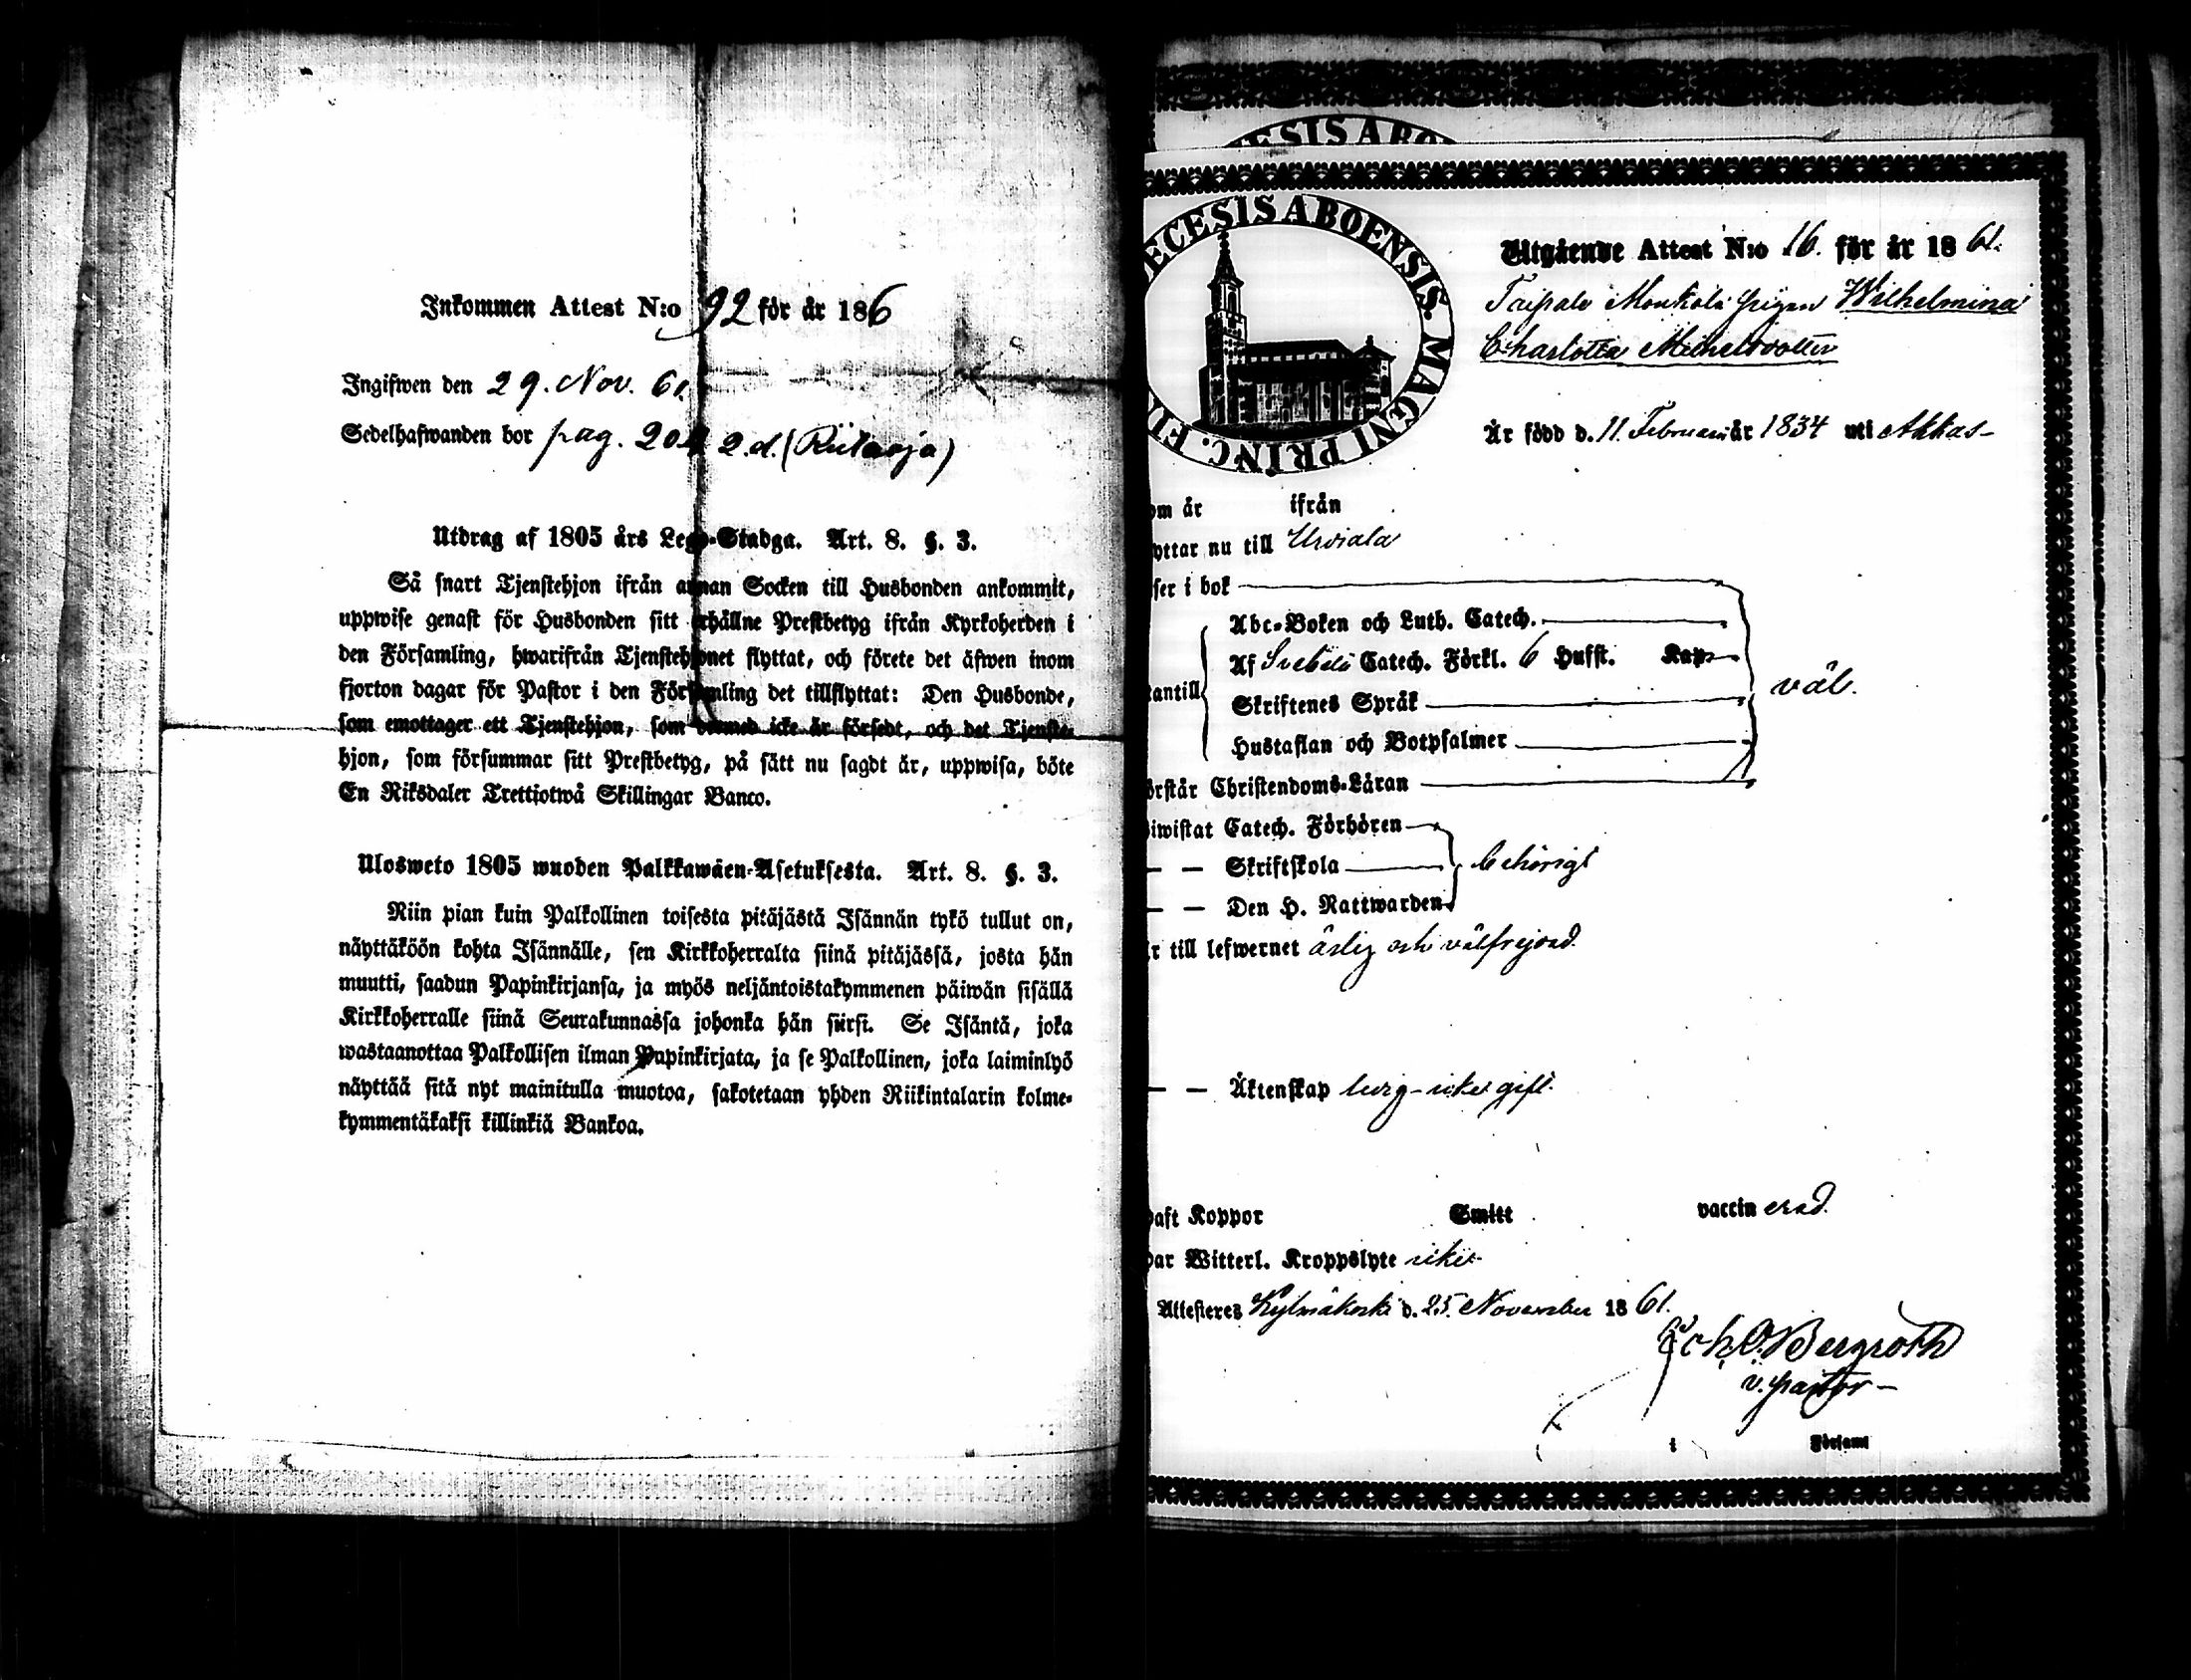 Inkommen Attest N:o 92 för år 186
Ingifwen den 29. Nov. 61.
Sedelhafwanden bor pag. 204 2.d. (Riitaoja)
Utdrag af 1805 års Lego-Stadga. Art. 8. §. 3.
Så snart Tjenstehjon ifrån annan Socken till Husbonden ankommit,
uppwise genast för Husbonden sitt erhållne Prestbetyg ifrån Kyrkoherden i
den Församling, hwarifrån Tjenstehjonet flyttat, och förete det äfwen inom
fjorton dagar för Pastor i den Församling det tillflyttat: Den Husbonde,
som emottager ett Tjenstehjon, som dermed icke är försedt, och det Tjenste-
hjon, som försummar sitt Prestbetyg, på sätt nu sagdt är, uppwisa, böte
En Riksdaler Trettiotwå Skillingar Banco.
Ulosweto 1805 wuoden Palkkawäen-Asetuksesta. Art. 8. §. 3.
Niin pian kuin Palkollinen toisesta pitäjästä Isännän tykö tullut on,
näyttäköön kohta Isännälle, sen Kirkkoherralta siinä pitäjässä, josta hän
muutti, saadun Papinkirjansa, ja myös neljäntoistakymmenen päiwän sisällä
Kirkkoherralle siinä Seurakunnassa johonka hän siirsi. Se Isäntä, joka
wastaanottaa Palkollisen ilman Papinkirjata, ja se Palkollinen, joka laiminlyö
näyttää sitä nyt mainitulla muotoa, sakotetaan yhden Riikintalarin kolme-
kymmentäkaksi killinkiä Bankoa.
ESIS ABO
ECESIS ABOENSIS. MAGNI PRINC. FI
Utgående Attest N:o 16. för år 1861.
Taipale Monkola pigan Wilhelmina
Charlotta Michelsdotter
Är född d. 11. Februari år 1834 uti Akkas
om år ifrån
yttar nu till Urdiala
ser i bok
Abc-Boken och Luth. Catech.
Af Svebelii Catech. Förkl. 6 Hufst. Kap.
antill
Skriftenes Språk
väl.
Hustaflan och Botpsalmer
örstår Christendoms-Läran
iwistat Catech. Förhören
— — Skriftskola behörigt
— — Den H. Nattwarden
r till lefwernet ärlig och välfrejdad.
— — Äktenskap ledig - icke gift.
aft Koppor Smitt vaccinerad.
ar Witterl. Kroppslyte icke
Attesteres Kylmäkoski d. 25. November 1861.
Joh. O. Bergroth
v. pastor
i Församl